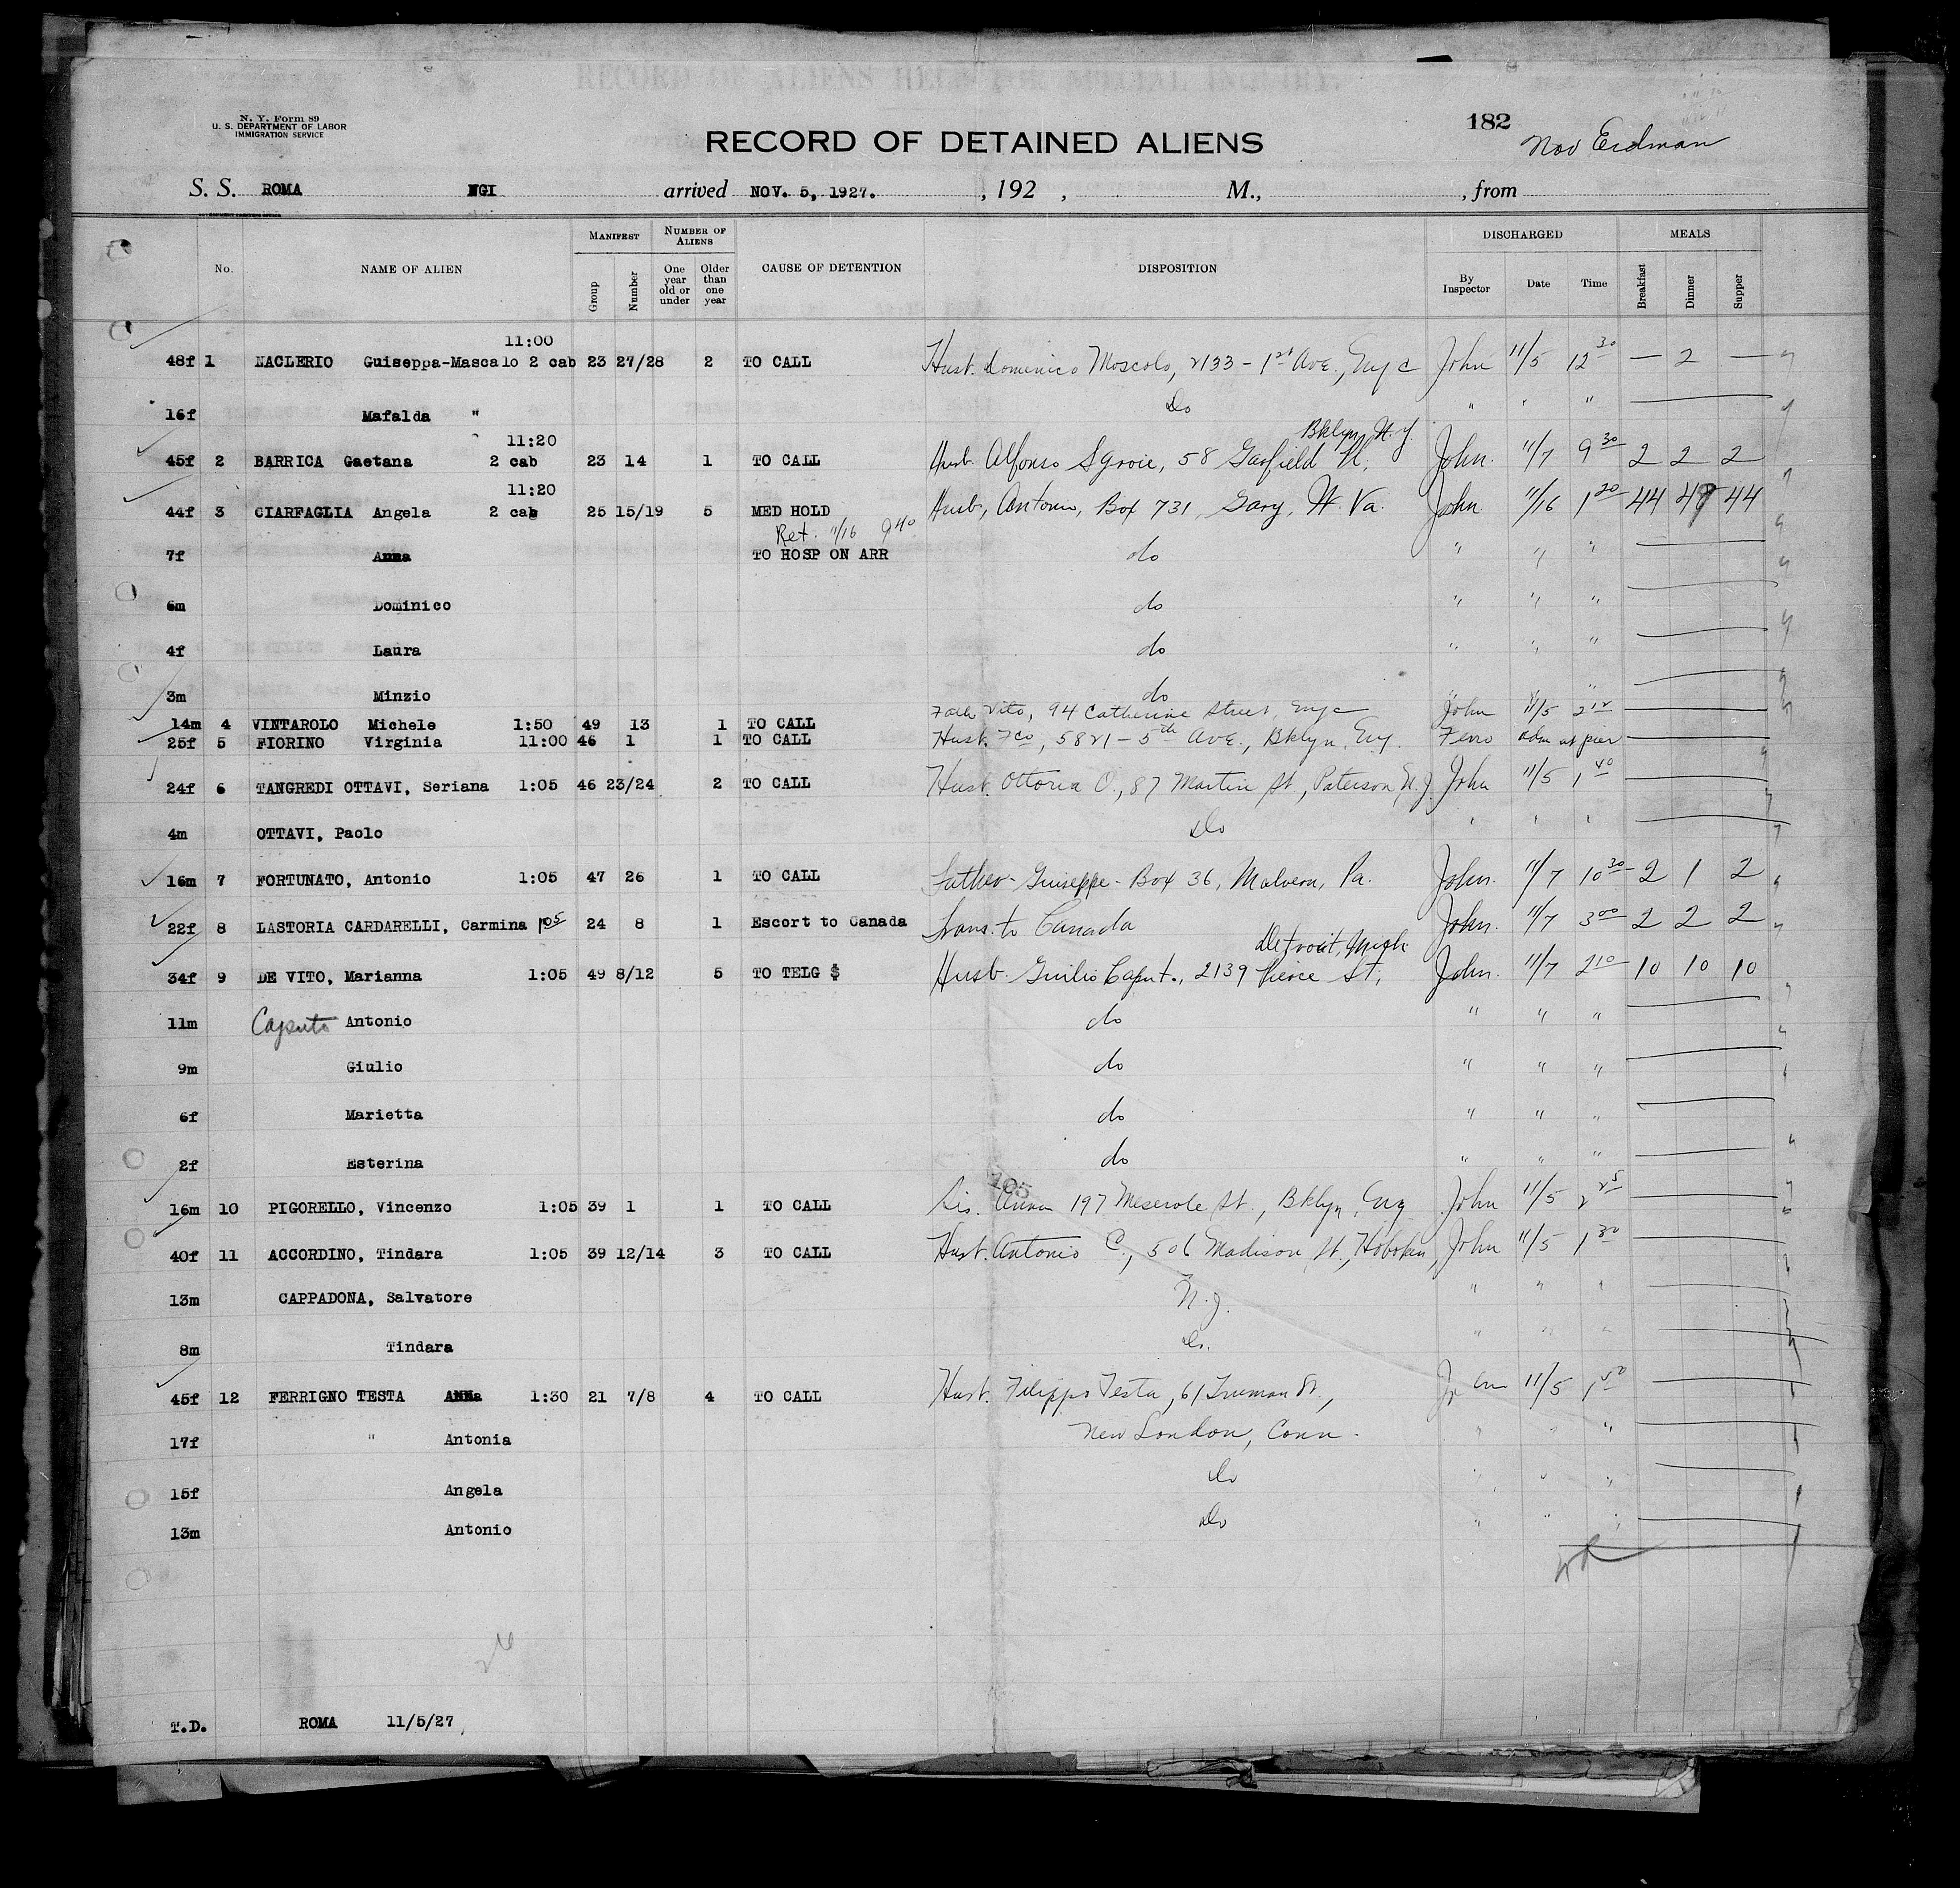 N. Y. Form 89
U. S. DEPARTMENT OF LABOR
IMMIGRATION SERVICE
182
RECORD OF DETAINED ALIENS
Nov Erdman
S. S. ROMA NGI arrived NOV. 5, 1927. , 192 , M., , from
No. NAME OF ALIEN MANIFEST Group Number NUMBER OF ALIENS One year old or under Older than one year CAUSE OF DETENTION DISPOSITION DISCHARGED By Inspector Date Time MEALS Breakfast Dinner Supper
11:00
48f 1 NACLERIO Guiseppa-Mascalo 2 cab 23 27/28 2 TO CALL Husb. Dominico Moscolo, 2133 - 1st Ave., Nyc John 11/5 12 30 — 2 —
16f Mafalda " Do " " "
11:20 Bklyn, N.Y.
45f 2 BARRICA Gaetana 2 cab 23 14 1 TO CALL Husb. Alfonso Sgroie, 58 Garfield Pl, John. 11/7 9 30 2 2 2
11:20
44f 3 CIARFAGLIA Angela 2 cab 25 15/19 5 MED HOLD Husb, Antonio, Box 731, Gary, W. Va. John. 11/16 1 20 44 44
Ret. 11/16 9 40
7f Anna TO HOSP ON ARR do " " "
6m Dominico do " " "
4f Laura do " " "
3m Minzio do " " "
14m 4 VINTAROLO Michele 1:50 49 13 1 TO CALL Fath Vito, 94 Catherine Street, Nyc John 11/5 2 12
25f 5 FIORINO Virginia 11:00 46 1 1 TO CALL Husb. Fco, 5821 - 5th Ave., Bklyn, Ny. Ferro adm at pier
24f 6 TANGREDI OTTAVI, Seriana 1:05 46 23/24 2 TO CALL Husb. Ottoria O., 87 Martin St., Paterson, N.J. John 11/5 1 40
4m OTTAVI, Paolo Do " " "
16m 7 FORTUNATO, Antonio 1:05 47 26 1 TO CALL Father - Guiseppe - Box 36, Malvern, Pa. John. 11/7 10 30 2 1 2
22f 8 LASTORIA CARDARELLI, Carmina 1 05 24 8 1 Escort to Canada Trans. to Canada John. 11/7 3 00 2 2 2
Detroit, Mich.
34f 9 DE VITO, Marianna 1:05 49 8/12 5 TO TELG $ Husb - Guilio Caput., 2139 Pierce St, John. 11/7 2 10 10 10 10
11m Caputo Antonio do " " "
9m Giulio do " " "
6f Marietta do " " "
2f Esterina do " " "
105
16m 10 PIGORELLO, Vincenzo 1:05 39 1 1 TO CALL Sis. Anna 197 Meserole St., Bklyn, Ny John 11/5 2 25
40f 11 ACCORDINO, Tindara 1:05 39 12/14 3 TO CALL Husb. Antonio C., 506 Madison St., Hoboken, John 11/5 1 30
13m CAPPADONA, Salvatore N.J. " " "
8m Tindara Do. " " "
45f 12 FERRIGNO TESTA Anna 1:30 21 7/8 4 TO CALL Husb. Filippo Testa, 61 Truman St., John 11/5 1 50
17f " Antonia New London, Conn. " " "
15f Angela Do " " "
13m Antonio Do " " "
T.D. ROMA 11/5/27